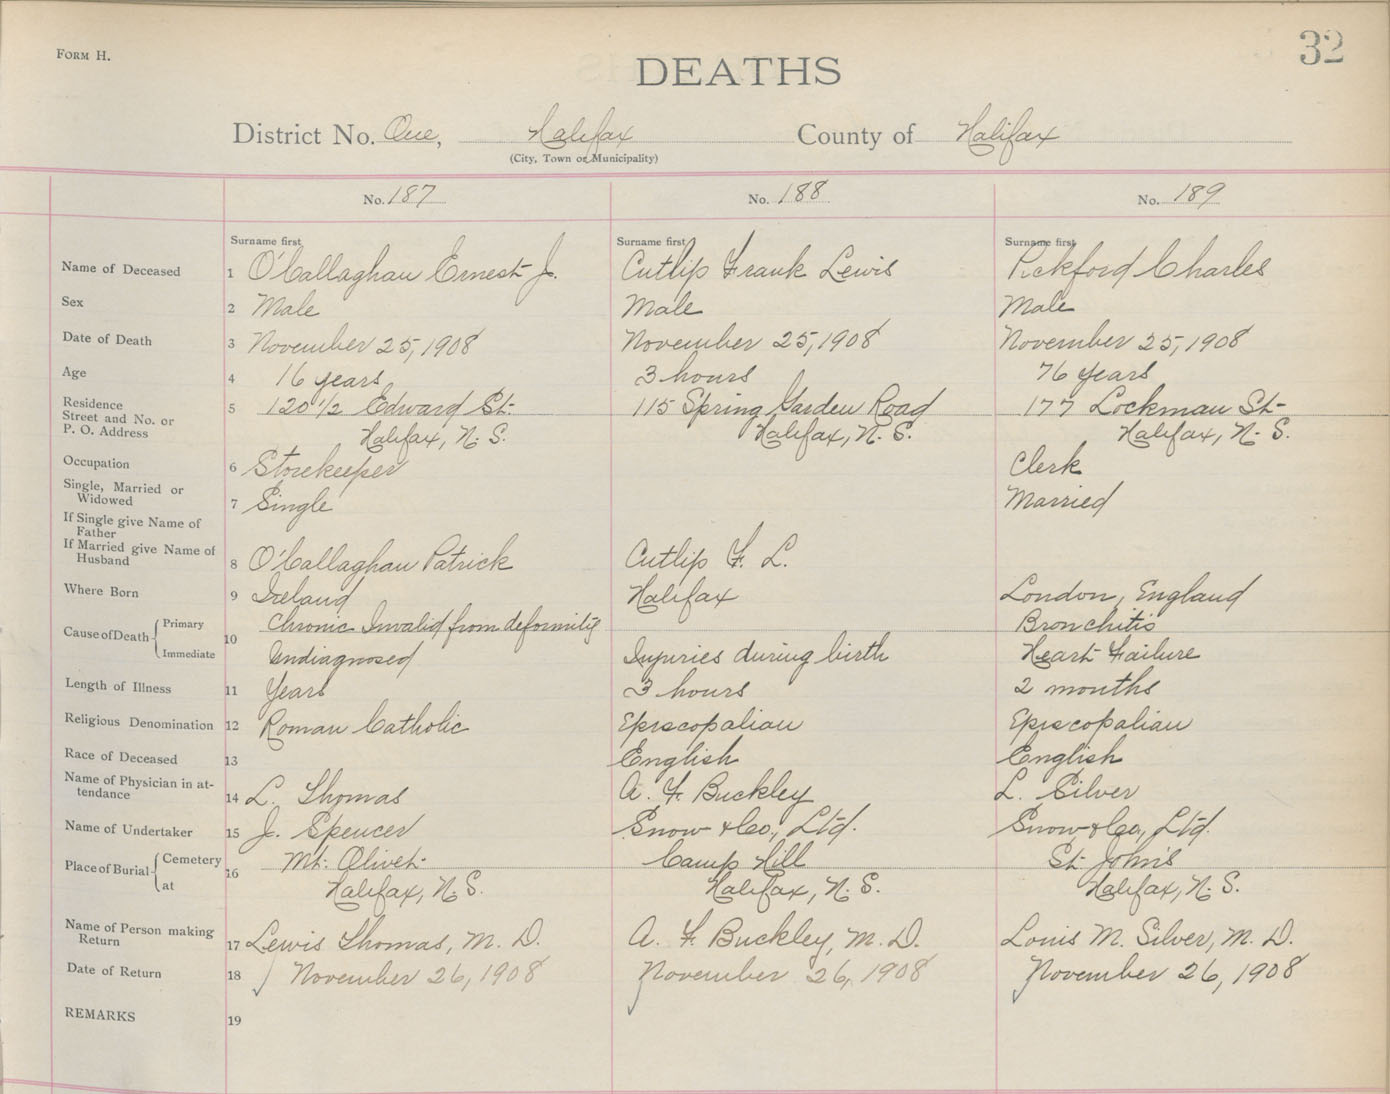 FORM H.
32
DEATHS
District No. One, Halifax County of Halifax
(City, Town or Municipality)
No. 187 No. 188 No. 189
Surname first Surname first Surname first
Name of Deceased 1 O'Callaghan Ernest J. Cutlip Frank Lewis Pickford Charles
Sex 2 Male Male Male
Date of Death 3 November 25, 1908 November 25, 1908 November 25, 1908
Age 4 16 years 3 hours 76 years
Residence 5 120 1/2 Edward St. 115 Spring Garden Road 177 Lockman St-
Street and No. or
P. O. Address Halifax, N. S. Halifax, N. S. Halifax, N. S.
Occupation 6 Storekeeper Clerk
Single, Married or
Widowed 7 Single Married
If Single give Name of
Father
If Married give Name of
Husband 8 O'Callaghan Patrick Cutlip F. L.
Where Born 9 Ireland Halifax London, England
Cause of Death Primary 10 Chronic Invalid from deformity Bronchitis
Immediate Undiagnosed Injuries during birth Heart Failure
Length of Illness 11 Years 3 hours 2 months
Religious Denomination 12 Roman Catholic Episcopalian Episcopalian
Race of Deceased 13 English English
Name of Physician in at-
tendance 14 L. Thomas A. F. Buckley L. Silver
Name of Undertaker 15 J. Spencer Snow & Co., Ltd. Snow & Co., Ltd.
Place of Burial Cemetery 16 Mt. Olivet Camp Hill St. John's
at Halifax, N. S. Halifax, N. S. Halifax, N. S.
Name of Person making
Return 17 Lewis Thomas, M. D. A. F. Buckley, M. D. Louis M. Silver, M. D.
Date of Return 18 November 26, 1908 November 26, 1908 November 26, 1908
REMARKS 19